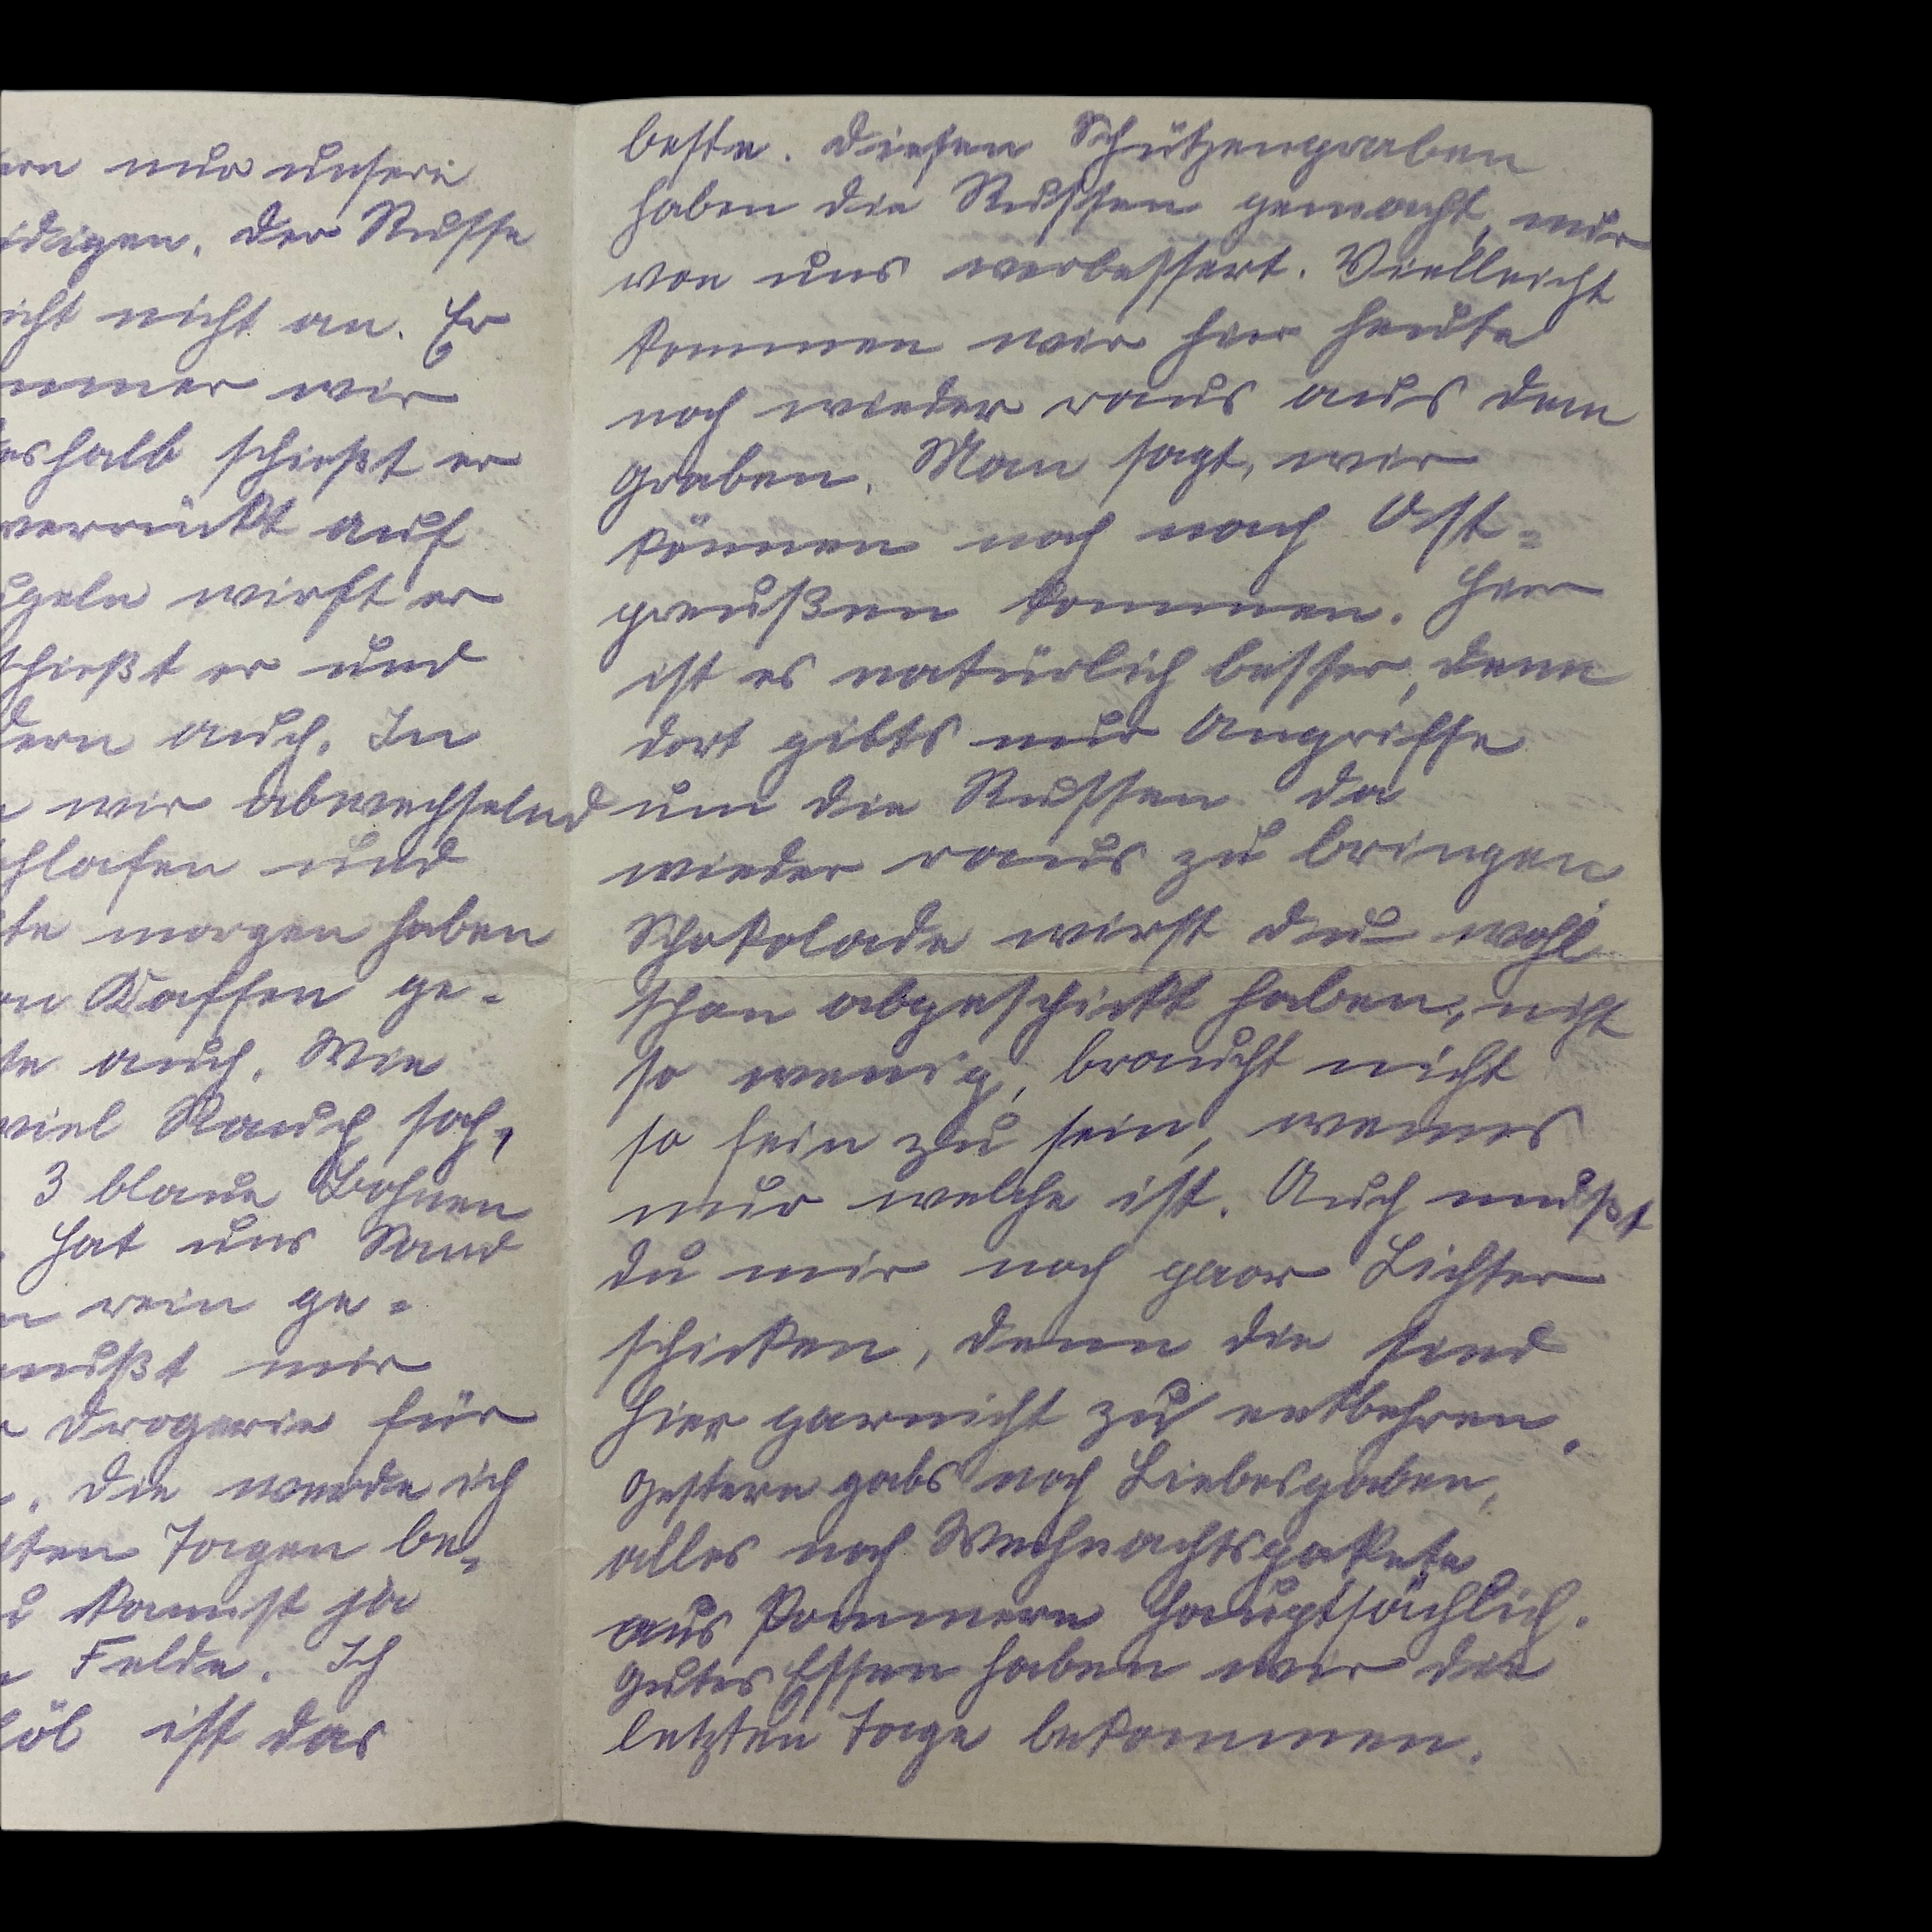 ern nur unsere
idigen. Der Russe
icht nicht an. Er
mmer wir
eshalb schießt er
verrückt auf
ugeln wirft er
schießt er und
dern auch. In
n wir abwechselnd
chlafen und
te morgen haben
on Kaffee ge-
te auch. Wie
viel Rauch sah,
3 blaue Bohnen
hat uns Sand
n rein ge-
mußt mir
Drogerie für
. Die werde ich
sten Tagen be-
u kannst ja
Felde. Ich
löb ist das
beste. Diesen Schützengraben
haben die Russen gemacht, nur
von uns verbessert. Vielleicht
kommen wir hier heute
noch wieder raus aus dem
Graben. Man sagt, wir
können noch nach Ost-
preußen kommen. Hier
ist es natürlich besser, denn
dort gibts nur Angriffe
um die Russen da
wieder raus zu bringen.
Schokolade wirst du wohl
schon abgeschickt haben, nicht
so wenig, braucht nicht
so fein zu sein, wennes
nur welche ist. Auch mußt
du mir noch paar Lichter
schicken, denn die sind
hier garnicht zu entbehren.
Gestern gabs noch Liebesgaben,
alles noch Weihnachtspakete
aus Pommern hauptsächlich.
Gutes Essen haben wir die
letzten Tage bekommen.